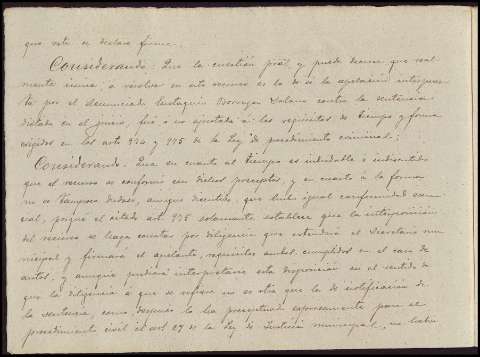 que este se declare firme.
Considerando: Que la cuestión prál. y puede decirse que real
mente única, a resolver en este recurso es la de si la apelación interpues
ta por el denunciado Eustaquio Solano contra la sentencia
dictada en el juicio, fué ó no ajustada á los requisitos de tiempo y forma
exigidos en los arts 974 y 975 de la Ley de procedimiento criminal;
Considerando: Que en cuanto al tiempo es indudable é indiscutido
que el recurso se conformó con dichos preceptos, y en cuanto á la forma
no es tampoco dudoso, aunque discutido, que hubo igual conformidad esen
cial, porque el citado art. 975 solamente establece que la interposición
del recurso se haga constar por diligencia que extenderá el Secretario mu
nicipal y firmará el apelante, requisitos ambos cumplidos en el caso de
autos, y aunque pudiera interpretarse esta disposición en el sentido de
que la diligencia á que se refiere no es otra que la de notificación de
la sentencia, como después lo ha preceptuado expresamente para el
procedimiento civil el art 27 de la Ley de Justicia municipal, no habría